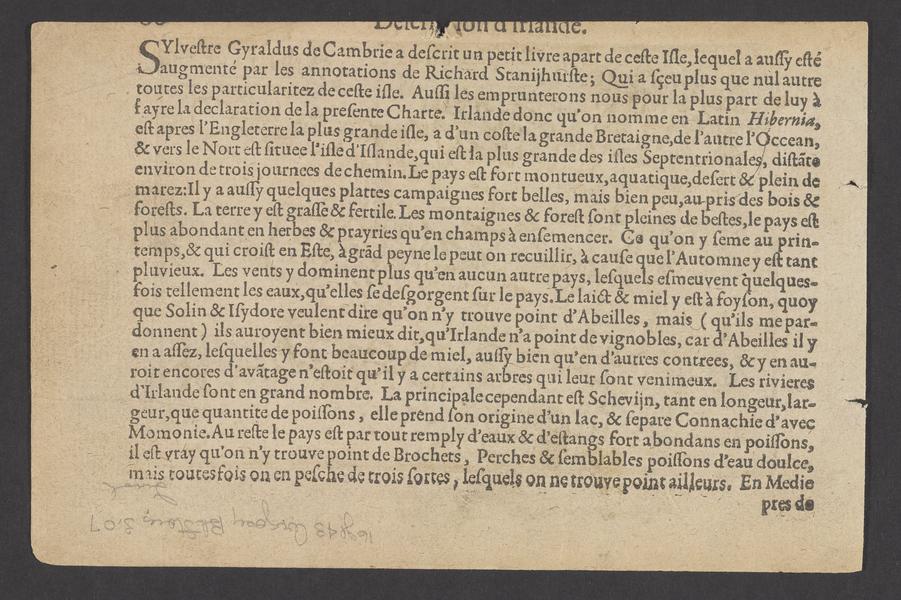 Description d'Irlande.
SYlvestre Gyraldus de Cambrie a descrit un petit livre apart de ceste Isle, lequel a aussy esté
augmenté par les annotations de Richard Stanijhurste; Qui a sçeu plus que nul autre
toutes les particularitez de ceste isle. Aussi les emprunterons nous pour la plus part de luy à
fayre la declaration de la presente Charte. Irlande donc qu'on nomme en Latin Hibernia,
est apres l'Engleterre la plus grande isle, a d'un coste la grande Bretaigne, de l'autre l'Occean,
& vers le Nort est situee l'isle d'Islande, qui est la plus grande des isles Septentrionales, distãte
environ de trois journees de chemin. Le pays est fort montueux, aquatique, desert & plein de
marez: Il y a aussy quelques plattes campaignes fort belles, mais bien peu, au pris des bois &
forests. La terre y est grasse & fertile. Les montaignes & forest sont pleines de bestes, le pays est
plus abondant en herbes & prayries qu'en champs à ensemencer. Ce qu'on y seme au prin-
temps, & qui croist en Este, à grãd peyne le peut on recuillir, à cause que l'Automne y est tant
pluvieux. Les vents y dominent plus qu'en aucun autre pays, lesquels esmeuvent quelques-
fois tellement les eaux, qu'elles se desgorgent sur le pays. Le laict & miel y est à foyson, quoy
que Solin & Isydore veulent dire qu'on n'y trouve point d'Abeilles, mais ( qu'ils me par-
donnent ) ils auroyent bien mieux dit, qu'Irlande n'a point de vignobles, car d'Abeilles il y
en a assez, lesquelles y font beaucoup de miel, aussy bien qu'en d'autres contrees, & y en au-
roit encores d'avãtage n'estoit qu'il y a certains arbres qui leur sont venimeux. Les rivieres
d'Irlande sont en grand nombre. La principale cependant est Schevijn, tant en longeur, lar-
geur, que quantite de poissons, elle prend son origine d'un lac, & separe Connachie d'avec
Momonie. Au reste le pays est par tout remply d'eaux & d'estangs fort abondans en poissons,
il est vray qu'on n'y trouve point de Brochets, Perches & semblables poissons d'eau doulce,
mais toutesfois on en pesche de trois sortes, lesquels on ne trouve point ailleurs. En Medie
pres de